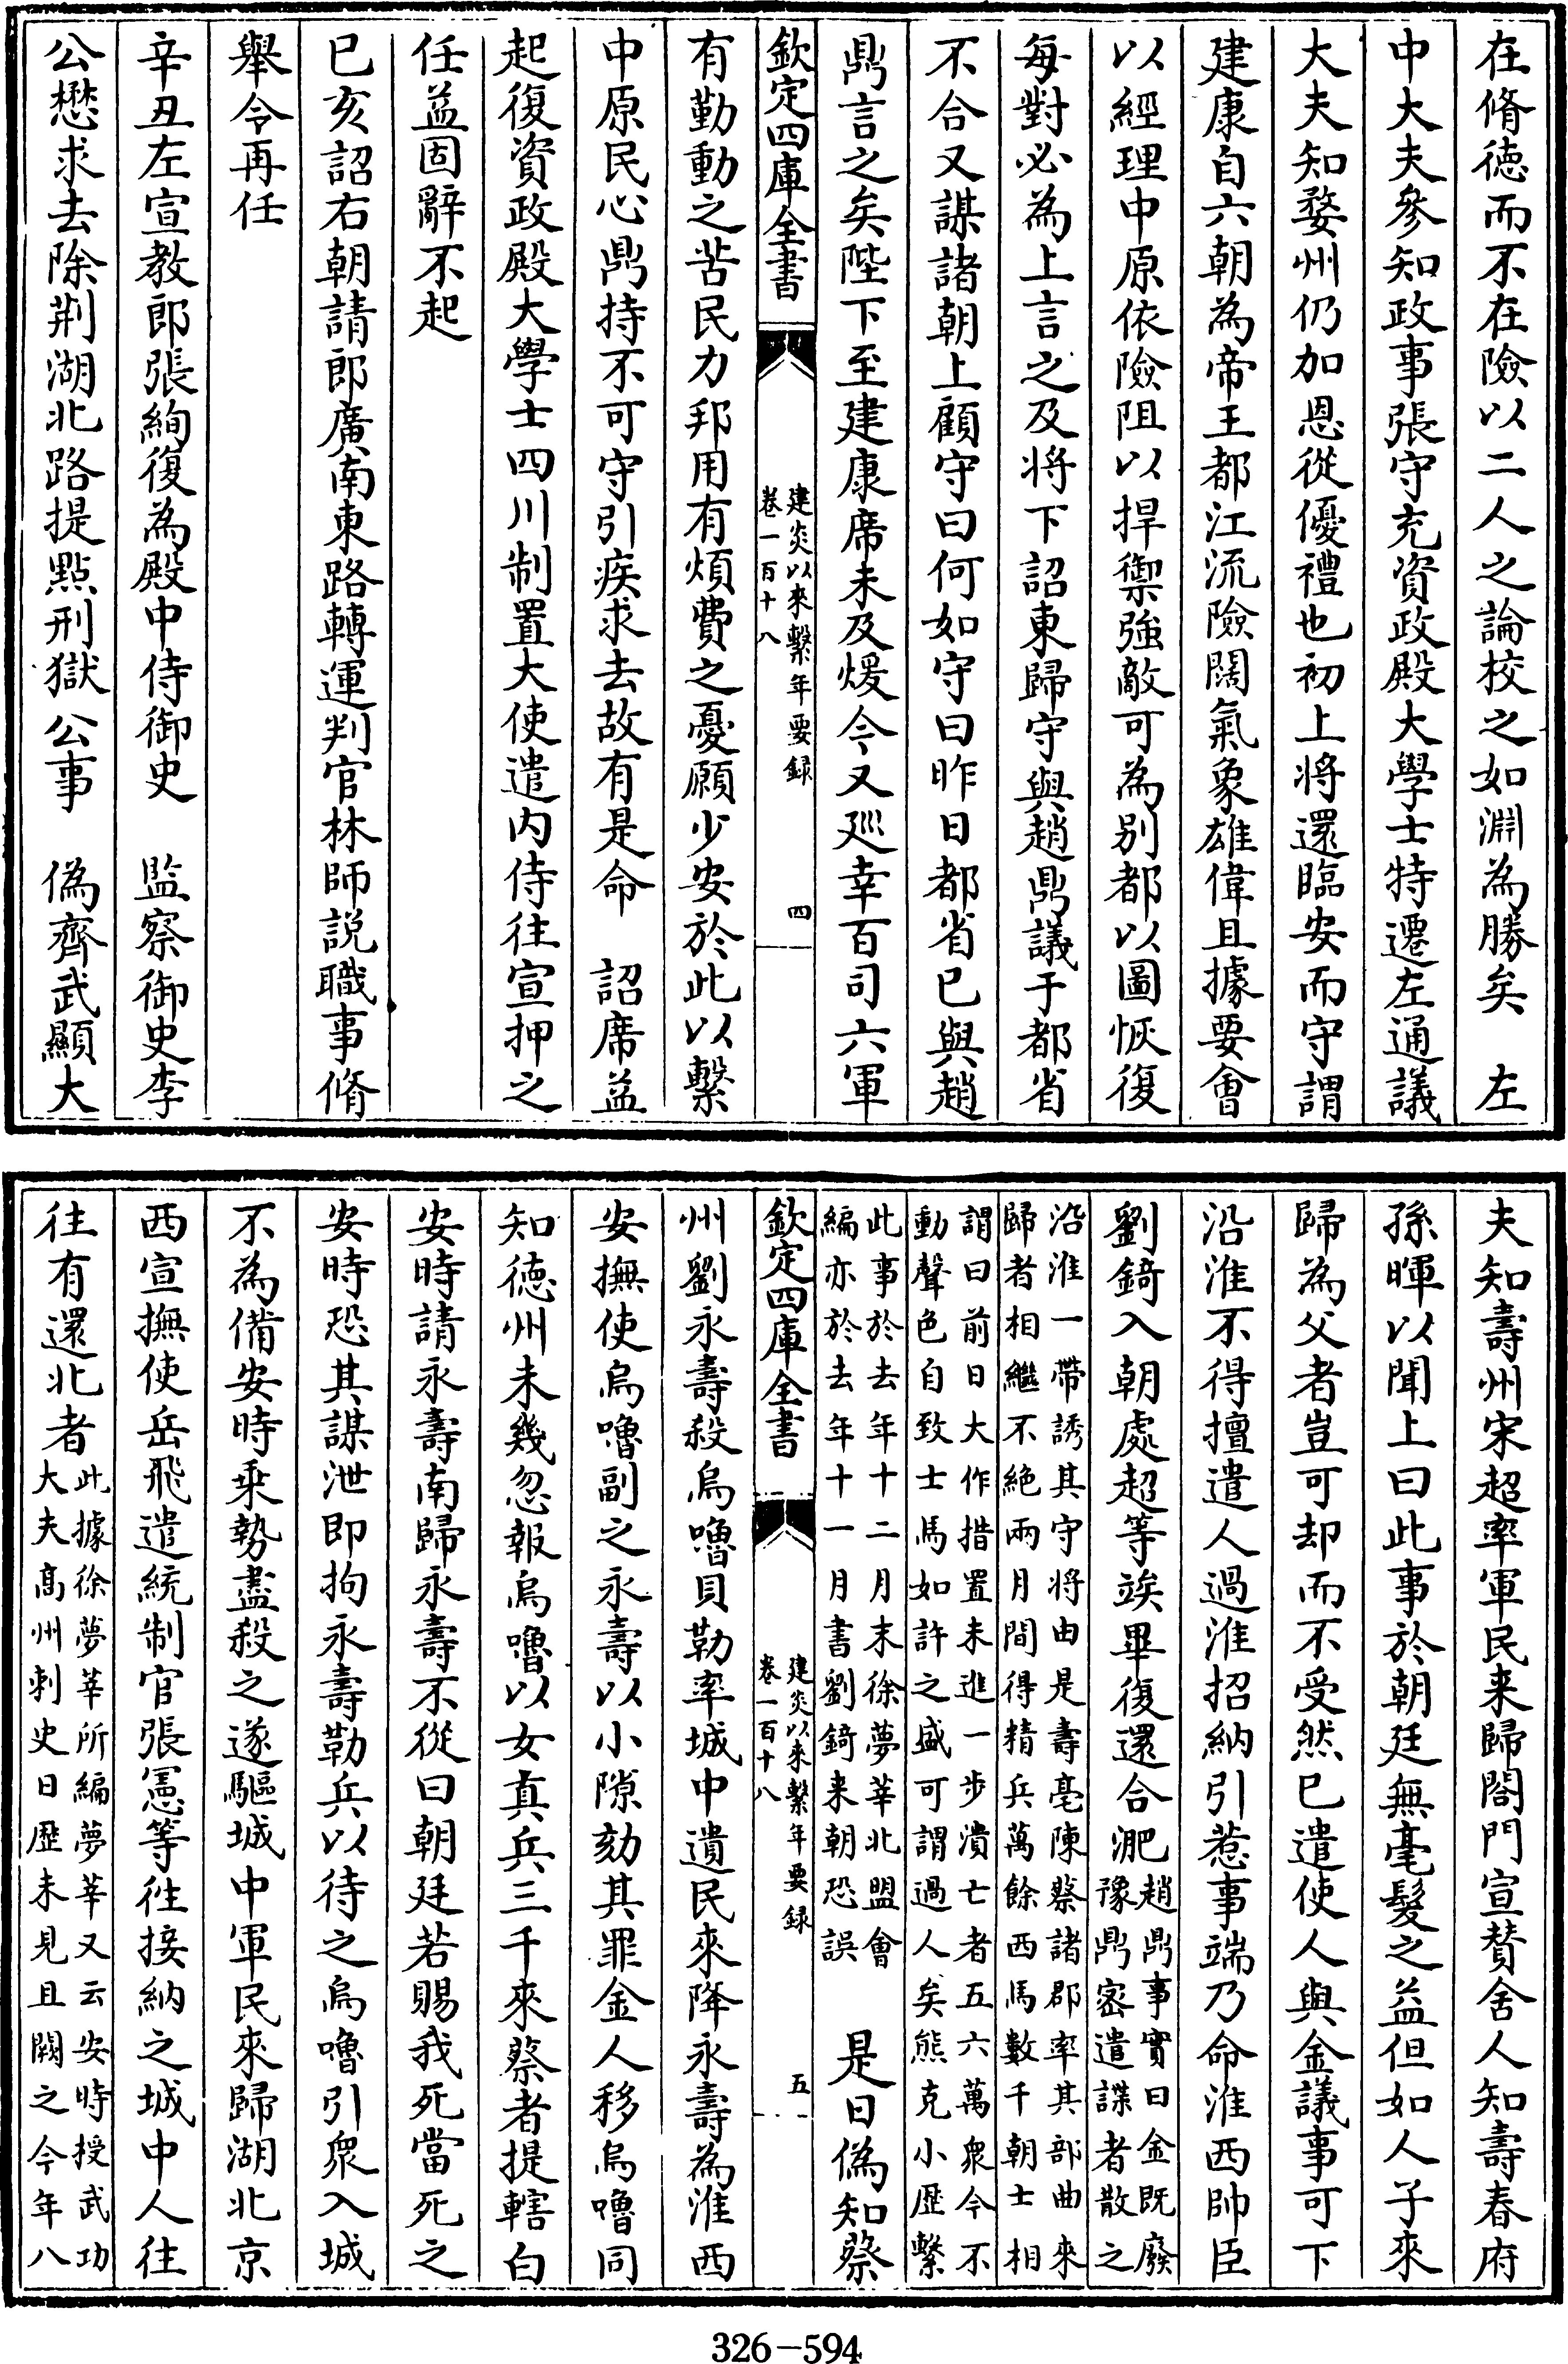 在脩徳而不在險以二人之論校之如淵為勝矣　左
中大夫參知政事張守充資政殿大學士特遷左通議
大夫知婺州仍加恩從優禮也初上将還臨安而守謂
建康自六朝為帝王都江流險闊氣象雄偉且據要會
以經理中原依險阻以捍禦強敵可為别都以圖恢復
每對必為上言之及将下詔東歸守與趙鼎議于都省
不合又謀諸朝上顧守曰何如守曰昨日都省已與趙
鼎言之矣陛下至建康席未及煖今又廵幸百司六軍
欽定四庫全書
建炎以来繫年要録
卷一百十八
四
有勤動之苦民力邦用有煩費之憂願少安於此以繫
中原民心鼎持不可守引疾求去故有是命　詔席益
起復資政殿大學士四川制置大使遣内侍往宣押之
任益固辭不起
已亥詔右朝請郎廣南東路轉運判官林師説職事脩
舉令再任
辛丑左宣教郎張絢復為殿中侍御史　監察御史李
公懋求去除荆湖北路提點刑獄公事　偽齊武顯大
夫知壽州宋超率軍民来歸閤門宣賛舍人知壽春府
孫暉以聞上曰此事於朝廷無毫髪之益但如人子來
歸為父者豈可却而不受然已遣使人與金議事可下
沿淮不得擅遣人過淮招納引惹事端乃命淮西帥臣
劉錡入朝處超等竢畢復還合淝
趙鼎事實曰金既廢
豫鼎密遣諜者散之
沿淮一帶誘其守将由是壽亳陳蔡諸郡率其部曲來
歸者相繼不絶兩月間得精兵萬餘西馬數千朝士相
謂曰前日大作措置未進一步潰亡者五六萬衆今不
動聲色自致士馬如許之盛可謂過人矣熊克小歴繫
此事於去年十二月末徐夢莘北盟會
編亦於去年十一月書劉錡来朝恐誤
是日偽知蔡
欽定四庫全書
建炎以来繫年要録
卷一百十八
五
州劉永壽殺烏嚕貝勒率城中遺民來降永壽為淮西
安撫使烏嚕副之永壽以小隙劾其罪金人移烏嚕同
知徳州未幾忽報烏嚕以女真兵三千來蔡者提轄白
安時請永壽南歸永壽不從曰朝廷若賜我死當死之
安時恐其謀泄即拘永壽勒兵以待之烏嚕引衆入城
不為備安時乘勢盡殺之遂驅城中軍民來歸湖北京
西宣撫使岳飛遣統制官張憲等徃接納之城中人往
往有還北者
此據徐夢莘所編夢莘又云安時授武功
大夫髙州刺史日歴未見且闕之今年八
326-594